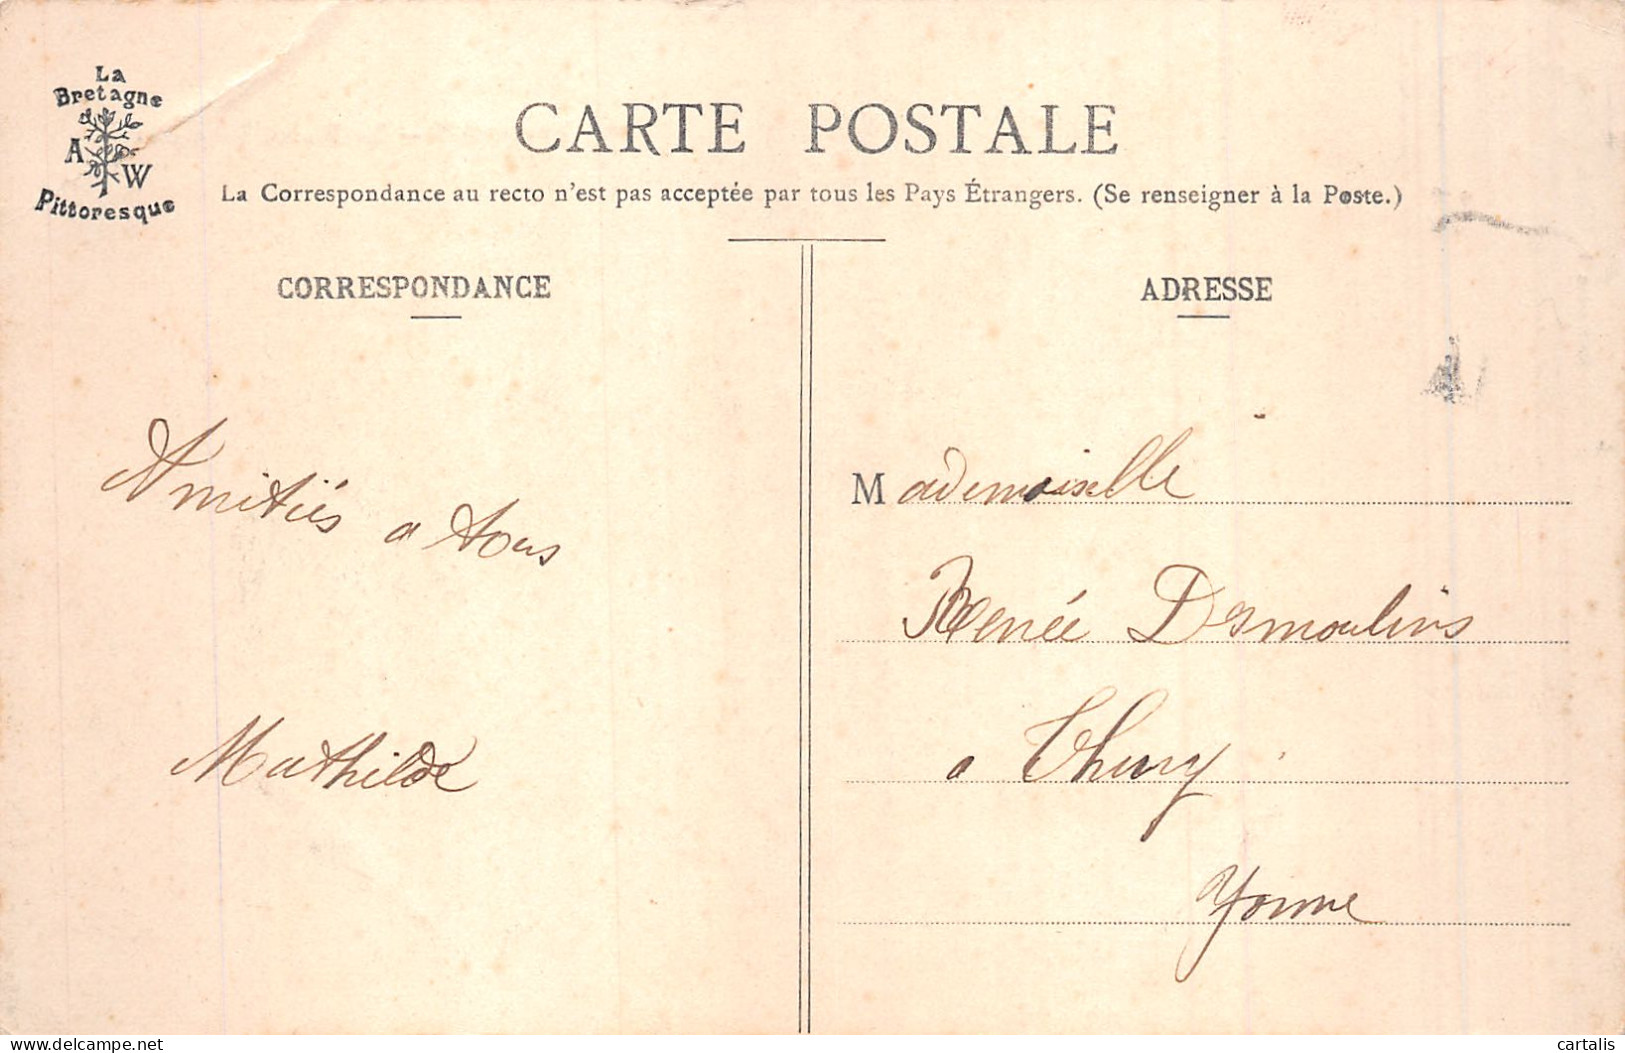 La
Bretagne
A W
Pittoresque
CARTE POSTALE
La Correspondance au recto n'est pas acceptée par tous les Pays Étrangers. (Se renseigner à la Poste.)
CORRESPONDANCE
Amitiés a tous
Mathilde
ADRESSE
Mademoiselle
Renée Desmoulins
a Thury
Yonne
delcampe.net
cartalis